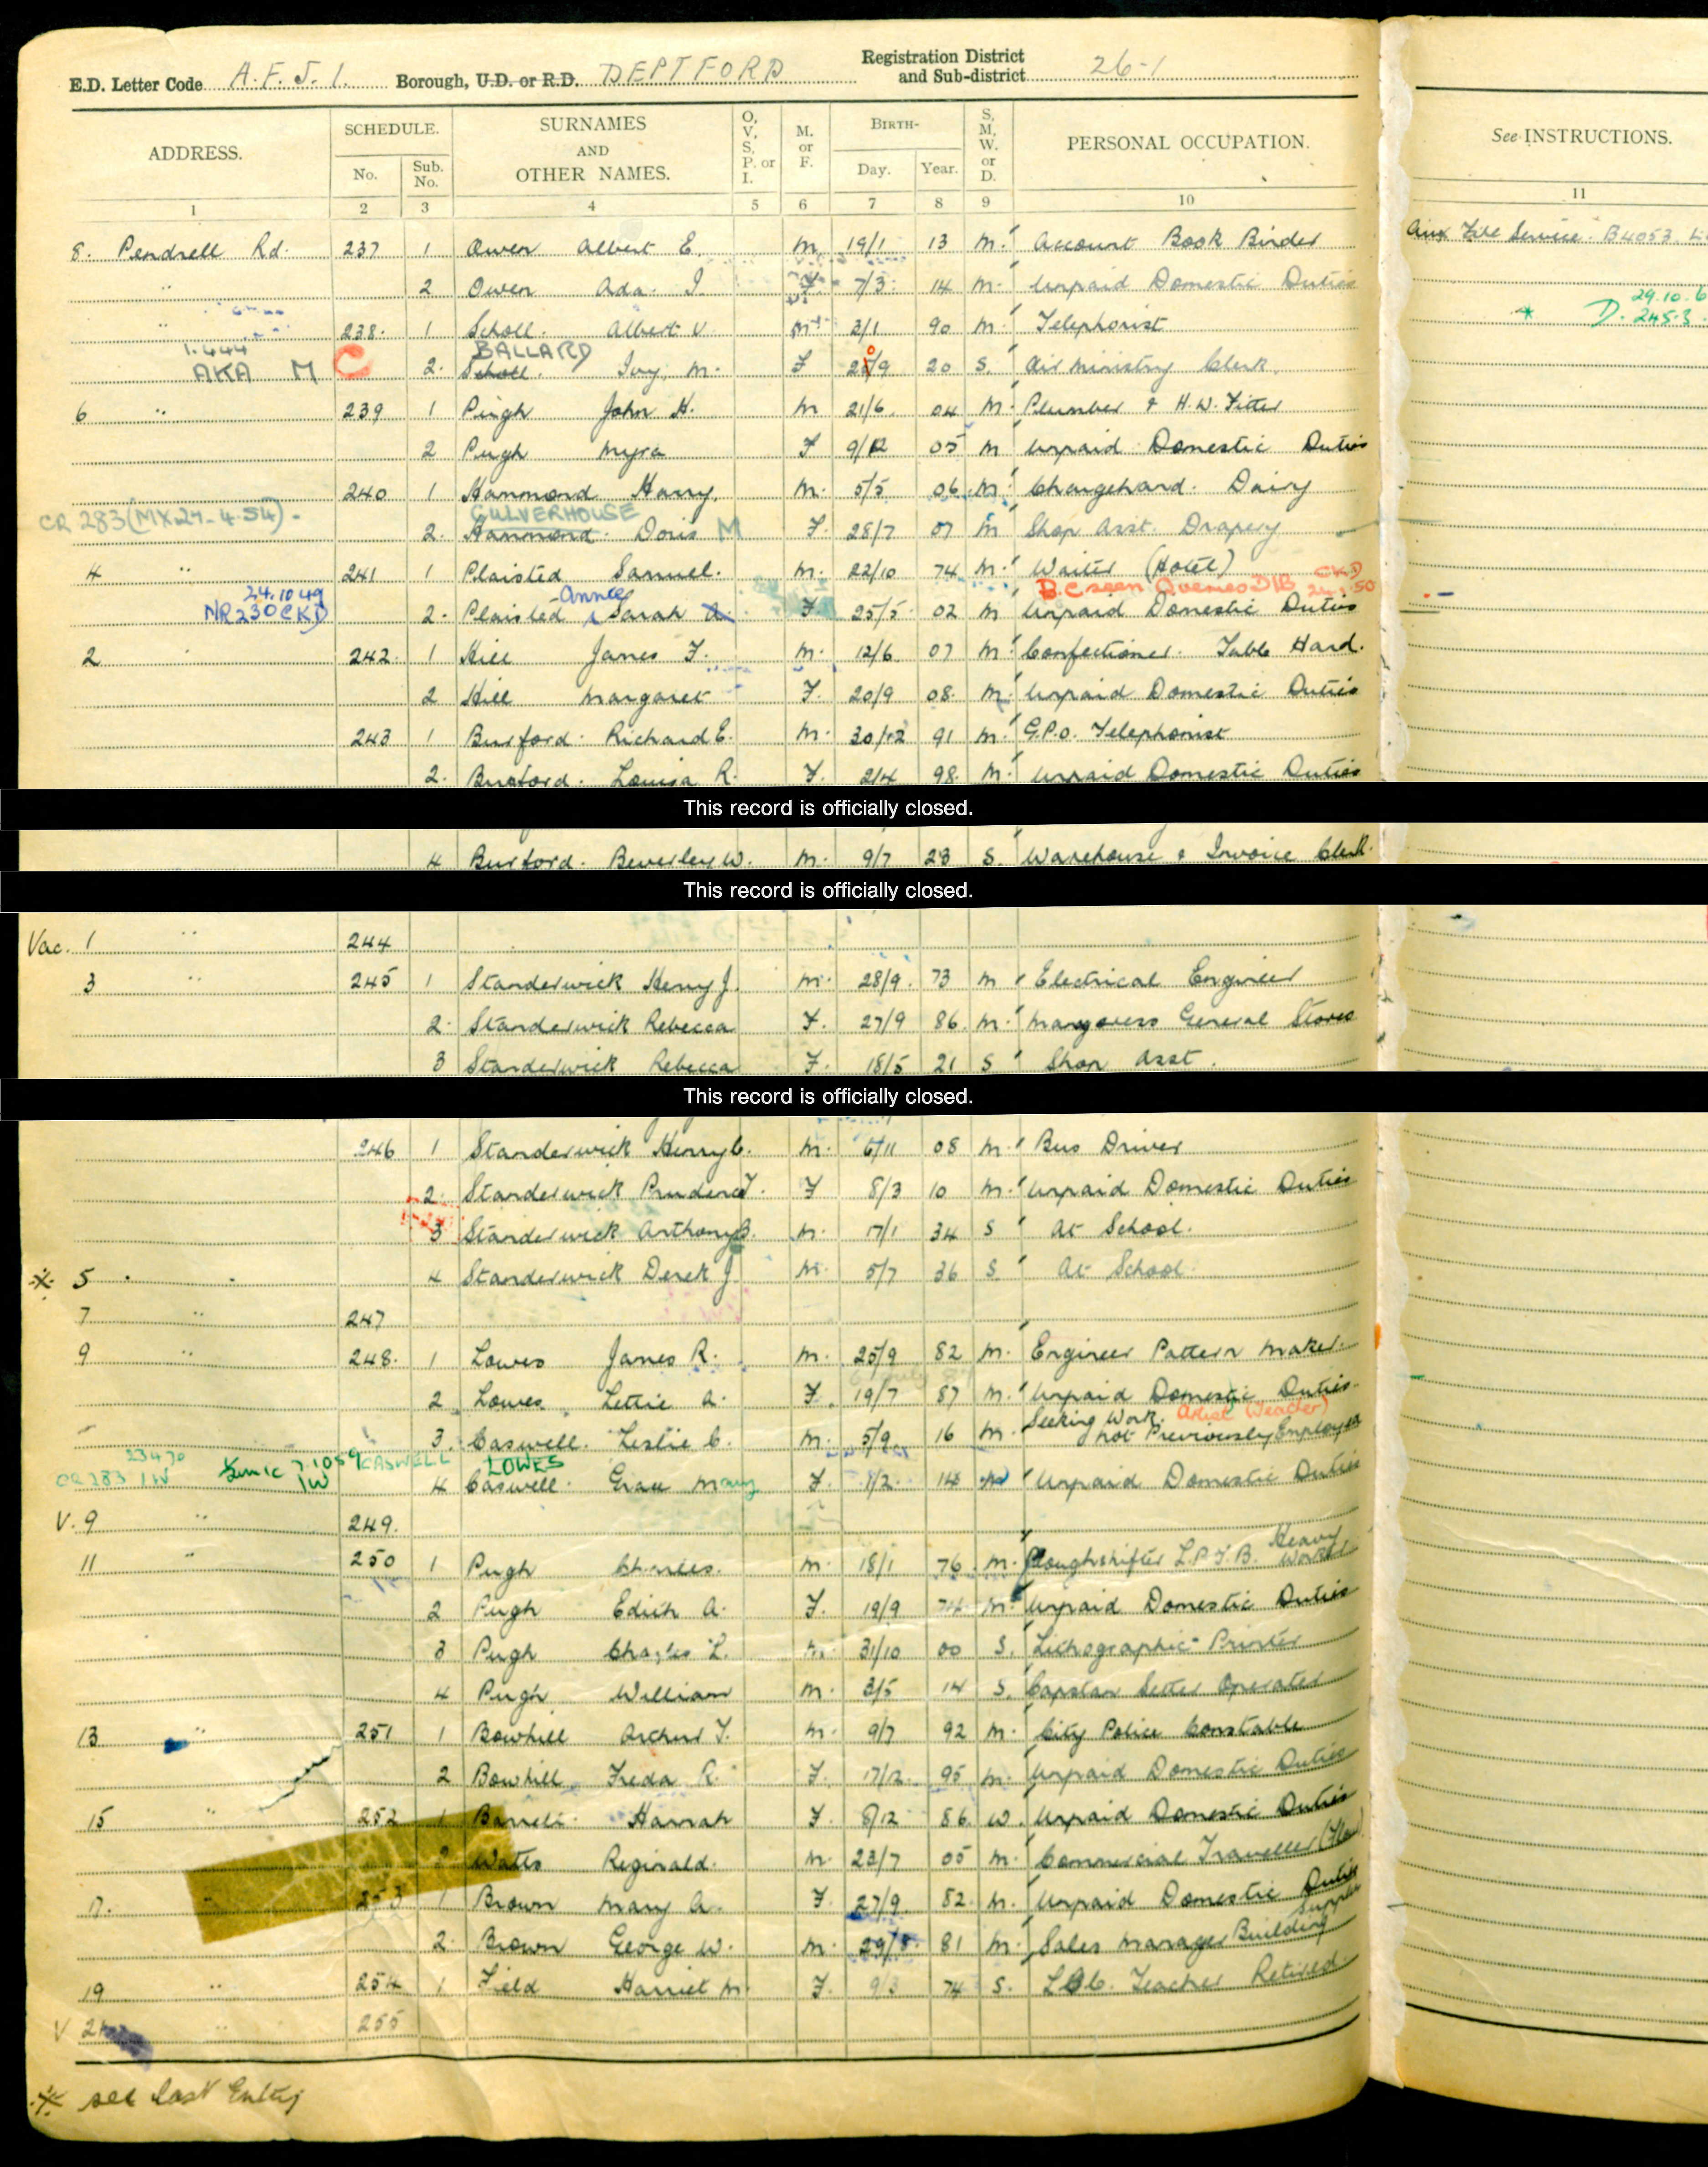 E.D. Letter Code A.F.J.1. Borough, U.D. or R.D. DEPTFORD Registration District and Sub-district 26-1
ADDRESS. SCHEDULE. No. Sub. No. SURNAMES AND OTHER NAMES. O, V, S, P. or I. M. or F. BIRTH- Day. Year. S, M, W. or D. PERSONAL OCCUPATION. See INSTRUCTIONS.
1 2 3 4 5 6 7 8 9 10 11
8. Pendrell Rd. 237 1 Owen Albert E. M. 19/1 13 M. Account Book Binder Aux Fire Service. B4053.
" 2 Owen Ada I. F 7/3 14 M. Unpaid Domestic Duties
29.10.6
" 238. 1 Scholl. Albert V. M 2/1 90 M. Telephonist * D. 245.3.
1.444 BALLARD
AKA M C 2. Scholl. Ivy M. F 20/9 20 S. Air Ministry Clerk.
6 " 239 1 Pugh John H. M 21/6 04 M. Plumber & H.W. Fitter
2 Pugh Myra F 9/12 05 M Unpaid Domestic Duties
240 1 Hammond Harry. M. 5/5 06 M. Chargehand. Dairy
CR 283 (MX 27-4-54) - GULVERHOUSE
2. Hammond. Doris M F. 28/7 07 M Shop Asst. Drapery
4 " 241 1 Plaisted Samuel. M. 22/10 74 M. Waiter (Hotel)
24.10.49 Annie B.C seen CKD
NR230CKD 2. Plaisted Sarah A. F 25/5 02 M Unpaid Domestic Duties
2 " 242. 1 Hill James F. M. 12/6 07 M. Confectioner. Table Hand.
2 Hill Margaret F. 20/9 08. M. Unpaid Domestic Duties
243 1 Burford. Richard E. M. 30/12 91 M. G.P.O. Telephonist
2. Burford. Louisa R. F. 2/4 98. M. Unpaid Domestic Duties
This record is officially closed.
4 Burford. Beverley W. M. 9/7 23 S. Warehouse & Invoice Clerk.
This record is officially closed.
Vac. 1 " 244
3 " 245 1 Standerwick Henry J. M. 28/9. 73 M Electrical Engineer
2. Standerwick Rebecca F. 27/9 86. M. Manageress General Stores
3 Standerwick Rebecca F. 18/5 21 S Shop Asst.
This record is officially closed.
246 1 Standerwick Henry C. M. 6/11 08 M. Bus Driver
2. Standerwick Prudence F. F 8/3 10 M. Unpaid Domestic Duties
3 Standerwick Anthony B. M. 17/1 34 S At School.
※ 5 4 Standerwick Derek J. M. 5/7 36 S. At School.
7 " 247
9 " 248. 1 Lowes James R. M. 25/9 82 M. Engineer Pattern Maker.
2 Lowes Lettie A. F. 19/7 87 M. Unpaid Domestic Duties.
Seeking Work. Artist (Teacher)
3. Caswell. Leslie C. M. 5/9 16 M. Not Previously Employed
23470 CASWELL LOWES
CR 283 IW 4 Caswell. Grace Mary F. 1/2. 14 Unpaid Domestic Duties
V. 9 " 249.
11 250 1 Pugh Charles. M. 18/1 76 M. Ploughshifter L.P.T.B. Heavy Worker
2 Pugh Edith A. F. 19/9 74 M. Unpaid Domestic Duties
3 Pugh Charles L. M. 31/10 00 S. Lithographic Printer
4 Pugh William M. 3/5 14 S. Capstan Setter Operator
13 " 251 1 Bowhill Arthur T. M. 9/7 92 M. City Police Constable
2 Bowhill Freda R. F. 17/12. 95 M. Unpaid Domestic Duties
15 " 252 1 Hannah F. 8/12 86. W. Unpaid Domestic Duties
2 Watts Reginald. M. 23/7 05 M. Commercial Traveller
17. " 253 1 Brown Mary A. F 27/9. 82. M. Unpaid Domestic Duties
2. Brown George W. M. 29/8. 81 M. Sales Manager Building Supplies
19 " 254 1 Field Harriet M. F. 9/3 74 S. L.C.C. Teacher Retired
V 21 " 255
※ see last Entry